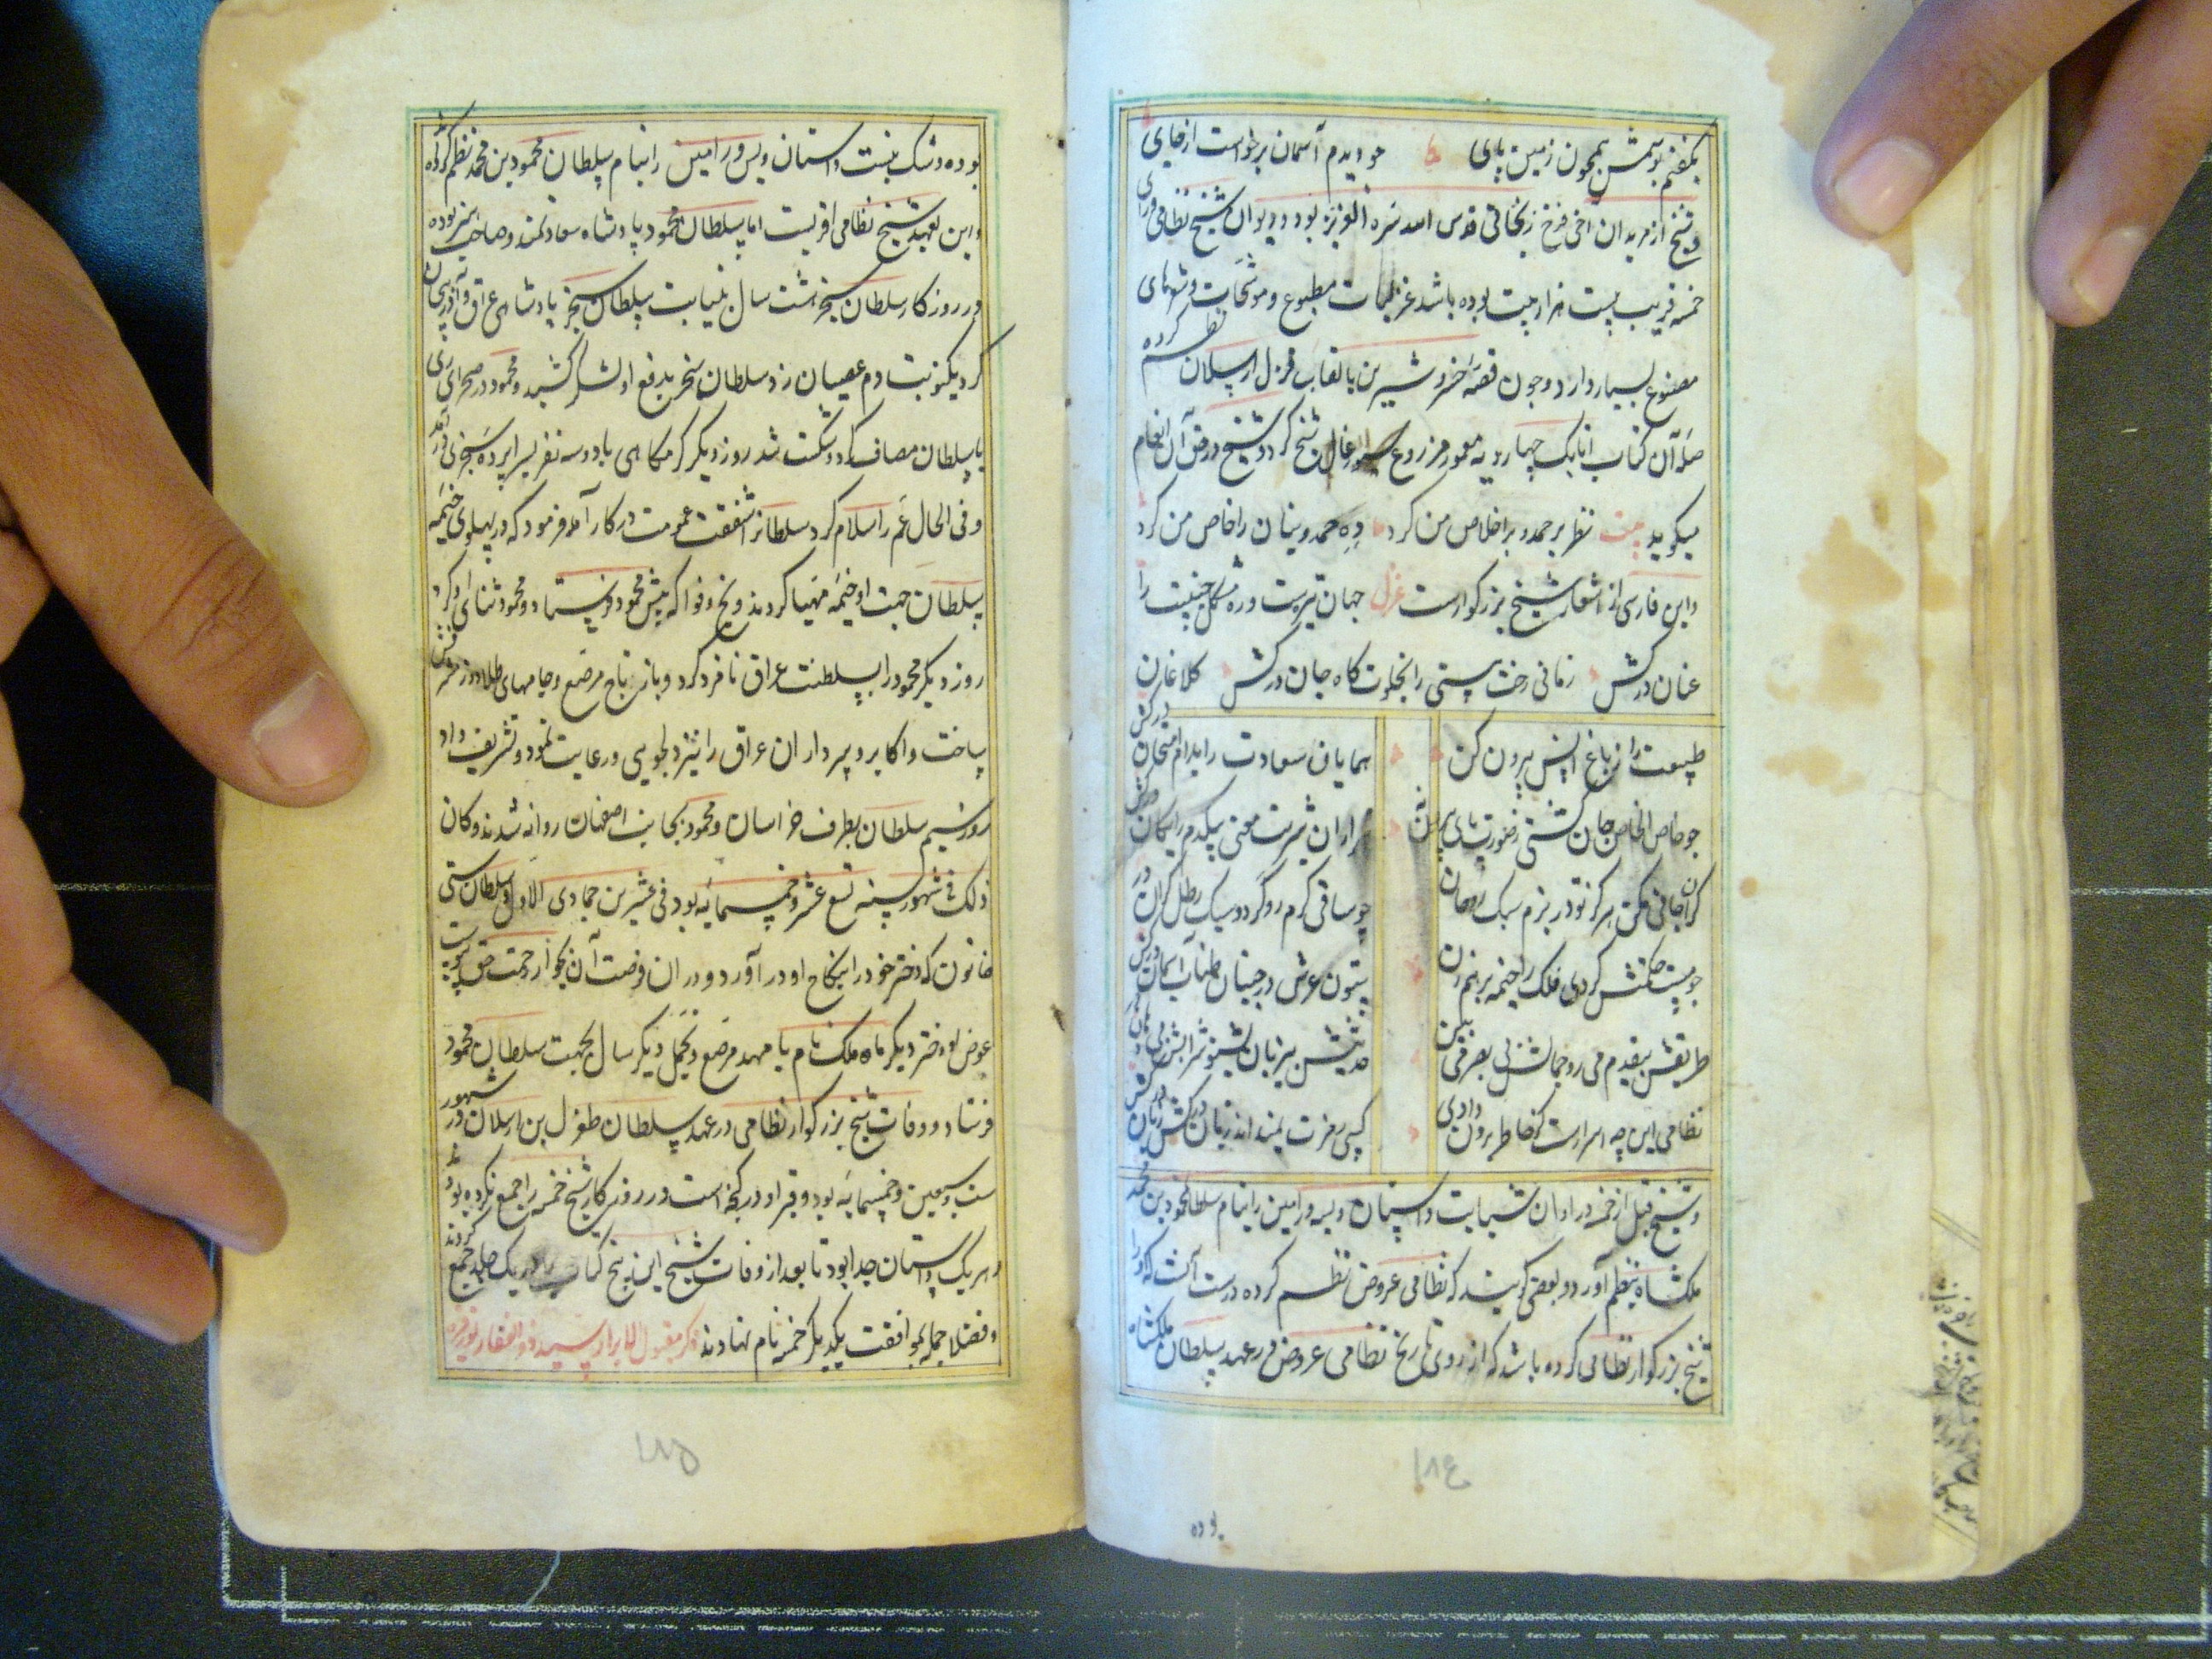 بگفتم بوسمش همچون زمین پای چو دیدم آسمان برخواست از جای
و شیخ از مریدان اخی فرخ زنجانی قدس الله سره العزیز بود و دیوان شیخ نظامی ورای
خمسه قریب بیست هزار بیت بوده باشد غزلیات مطبوع و موشحات و شعرهای
مصنوع بسیار دارد و چون قصه خسرو شیرین بالقاب قزل ارسلان نظم کرده
صله آن کتاب اتابک چهار دیه معمور مزروع سیورغال شیخ کرد و شیخ در حق آن انعام
میگوید بیت نظر بر حمد و بر اخلاص من کرد ده حمدونیان را خاص من کرد
و این فارسی از اشعار شیخ بزرگوارست غزل جهان تیرست و ره مشکل جنیبت را
عنان درکش زمانی رخت هستی را بخلوتگاه جان درکش کلاغان
طبیعت را ز باغ انس بیرون کن همایان سعادت را بدام امتحان درکش
چو خاص الخاص جان گشتی ز صورت پای بیرون نه هزاران شربت معنی بیکدم رایگان درکش
گران جانی مکن هرگز تو در بزم سبک روحان چو ساقی گرم رو گردد سبک رطل گران درکش
چو مست خلوتش گردی فلک را خیمه بر هم زن ستون عرش در جنبان طناب آسمان درکش
طریقش بیقدم می رو جمالش بی بصر می بین حدیثش بیزبان بشنو شرابش بی دهان درکش
نظامی این چه اسرارست کز خاطر برون دادی کسی رمزت نمیداند زبان درکش زبان درکش
و شیخ قبل از خمسه در اوان شباب داستان ویسه و رامین را بنام سلطان محمود بن محمد
ملکشاه بنظم آورد و بعضی گویند که نظامی عروضی نظم کرده درست آنست که
شیخ بزرگوار نظامی کرده باشد که از روی تاریخ نظامی عروضی در عهد سلطان ملکشاه
بوده
۱۸۴
بوده و شک نیست داستان ویس و رامین را بنام سلطان محمود بن محمد نظم کرده‌اند
و این بعهد شیخ نظامی اقربست اما سلطان محمود پادشاه سعادتمند و صاحب هنر بوده
در روزگار سلطان سنجر هشت سال بنیابت سلطان سنجر پادشاهی عراق و آذربیجان
کرد یکنوبت دم عصیان زد سلطان سنجر بدفع او لشکر کشید و محمود در صحرای ری
با سلطان مصاف کرد و شکست شد روز دیگر گرمگاهی با دو سه نفر بسراپرده سنجری درآمد
و فی الحال عم را سلام کرد سلطانرا شفقت عمومت درکار آمد فرمود که در پهلوی خیمه
سلطان جهت او خیمه مهیا کردند و یخ و فواکه پیش محمود فرستاد و محمود ثنای او کرد
روز دیگر محمود را بسلطنت عراق نامزد کرد و بازن تاج مرصع و جامهای طلادوز مشرف
ساخت و اکابر و سرداران عراق را نیز دلجویی و رعایت نمود و تشریف داد
روز سیم سلطان بطرف خراسان و محمود بجانب اصفهان روانه شدند و کان
ذلک فی شهور سنه تسع عشر و خمسمایه بود فی عشرین جمادی الاول و سلطان ستی
خاتون که دختر خود را بنکاح او در آورد و در ان فرصت آن بجوار رحمت حق پیوست
عوض او دختر دیگر ماه ملک نام با مهد مرصع و تجمل دیگر سال بجهت سلطان محمود
فرستاد و وفات شیخ بزرگوار نظامی در عهد سلطان طغرل بن ارسلان در شهور
ست و سبعین و خمسمایه بود و قبر او در گنجه است و در روزگار شیخ خمسه را جمع نکرده بودند
و هر یک داستان جدا بود تا بعد از وفات شیخ این پنج کتاب را در یک جلد جمع کردند
و فضلا جمله بموافقت یکدیگر خمسه نام نهادند ذکر مقبول الابرار سید ذوالفقار نور قبره
۱۸۵